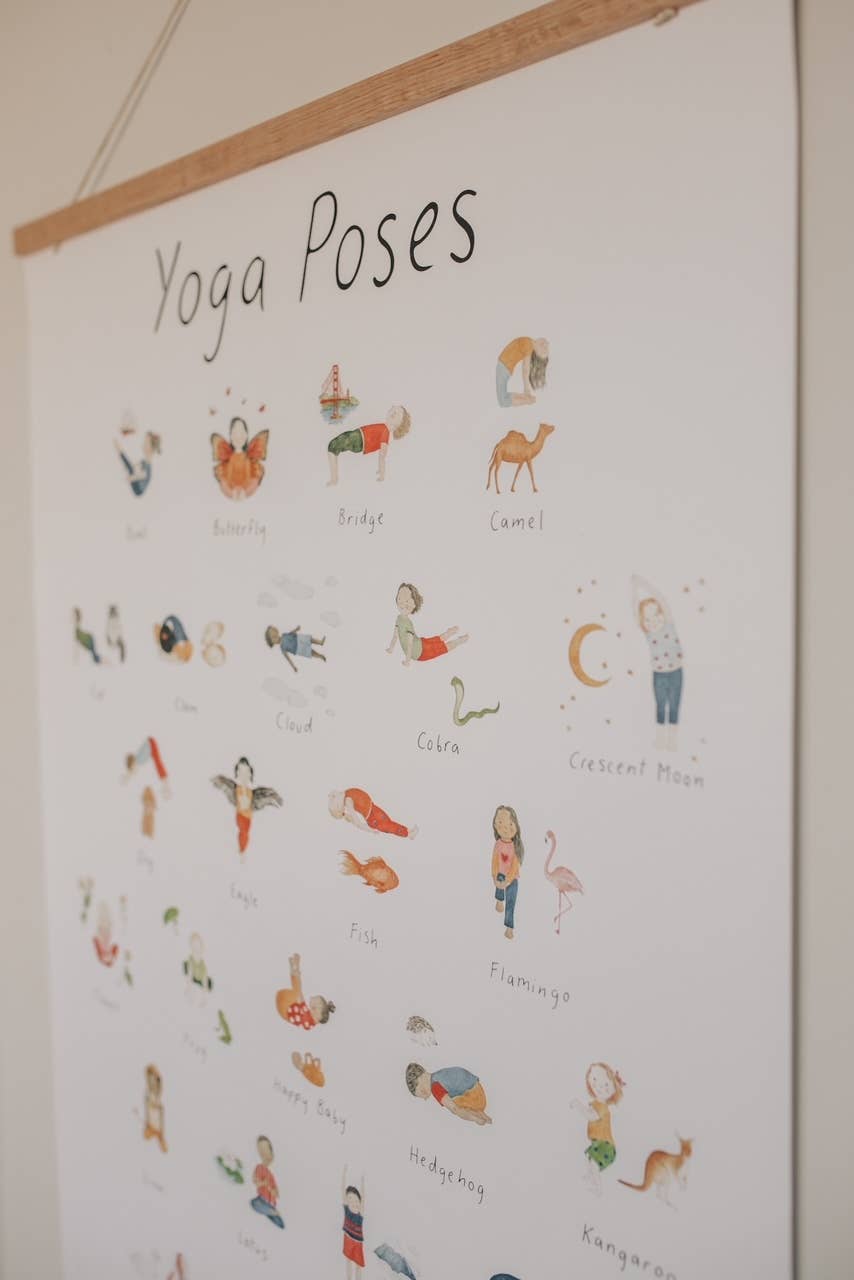 Yoga Poses
Boat Butterfly Bridge Camel
Clam Cloud Cobra Crescent Moon
Dog Eagle Fish Flamingo
Frog Happy Baby Hedgehog Kangaroo
Lotus